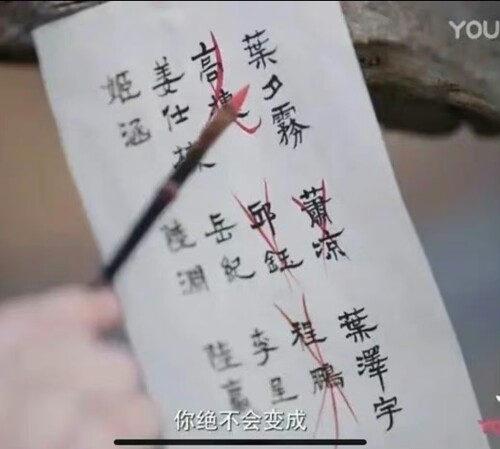 YOU
葉夕霧
高
姜仕
姬涵
蕭凉
邱鈺
岳紀
陸淵
葉澤宇
程鵬
李呈
陸
你绝不会变成